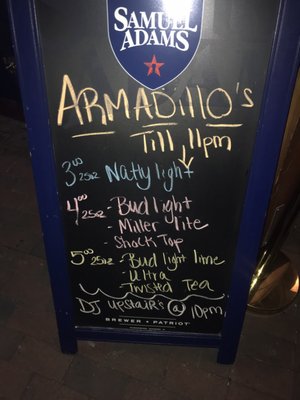 SAMUEL
ADAMS
ARMADillO's
Till 11pm
3.00 25oz Natty light
4.00 25oz - Bud light
- Miller lite
- Shock Top
5.00 25oz - Bud light lime
- Ultra
- Twisted Tea
DJ upstair's @ 10pm
BREWER + PATRIOT